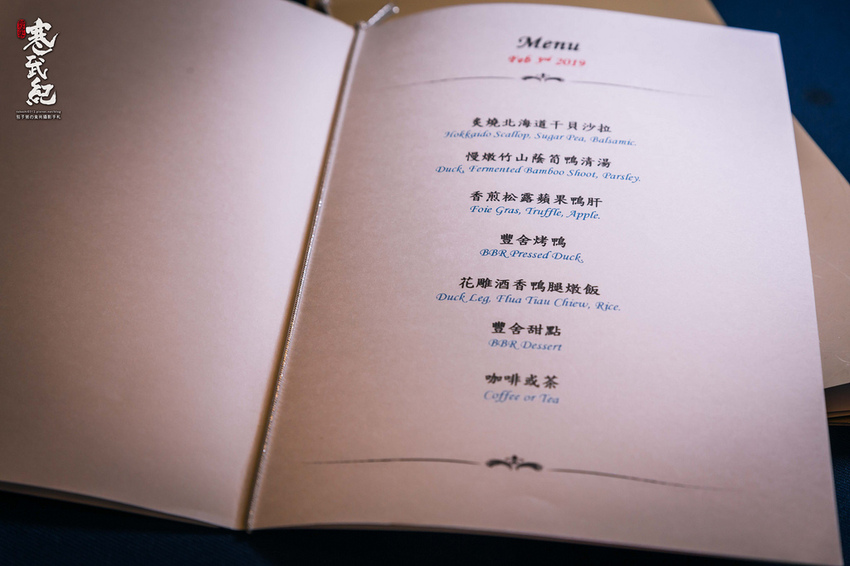 寒武紀
Menu
Feb 3rd 2019
炙燒北海道干貝沙拉
Hokkaido Scallop, Sugar Pea, Balsamic.
慢燉竹山蔭筍鴨清湯
Duck, Fermented Bamboo Shoot, Parsley.
香煎松露蘋果鴨肝
Foie Gras, Truffle, Apple.
豐舍烤鴨
BBR Pressed Duck,
花雕酒香鴨腿燉飯
Duck Leg, Flua Tiau Chiew, Rice.
豐舍甜點
BBR Dessert
咖啡或茶
Coffee or Tea